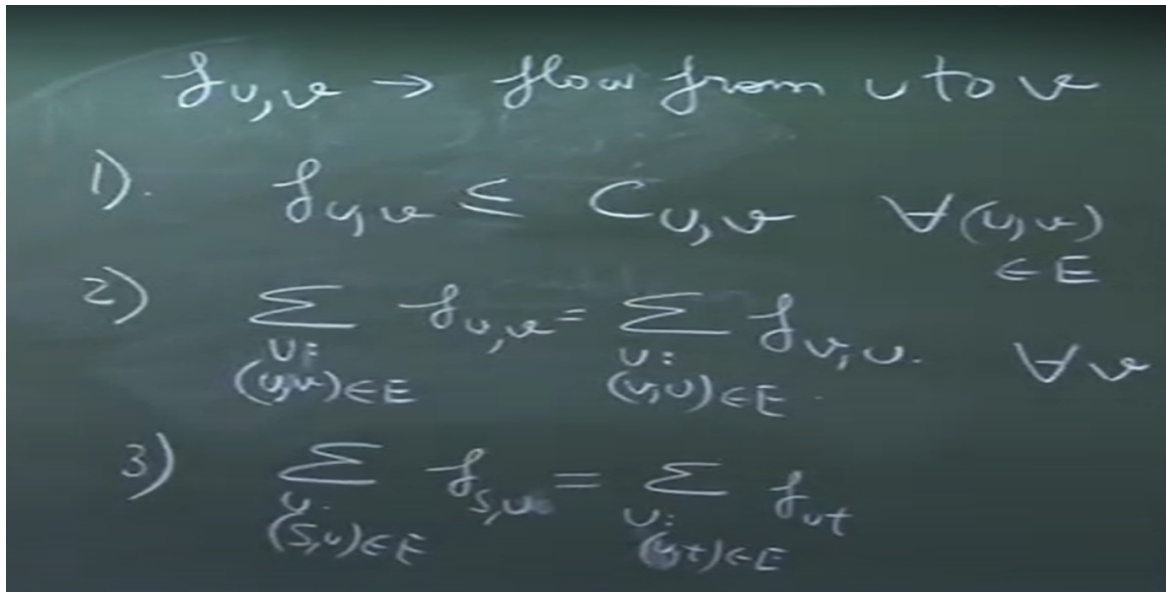 f_{u,v} → flow from u to v
1). f_{u,v} ≤ C_{u,v} ∀(u,v) ∈ E
2) Σ_{u: (u,v)∈E} f_{u,v} = Σ_{u: (v,u)∈E} f_{v,u}. ∀v
3) Σ_{u: (s,u)∈E} f_{s,u} = Σ_{u: (u,t)∈E} f_{ut}